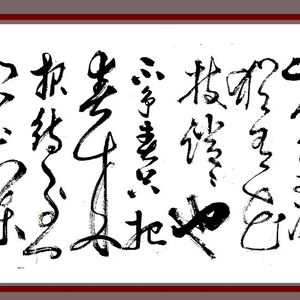 犹有花
枝俏々也
不争春只把
春来
报待到山